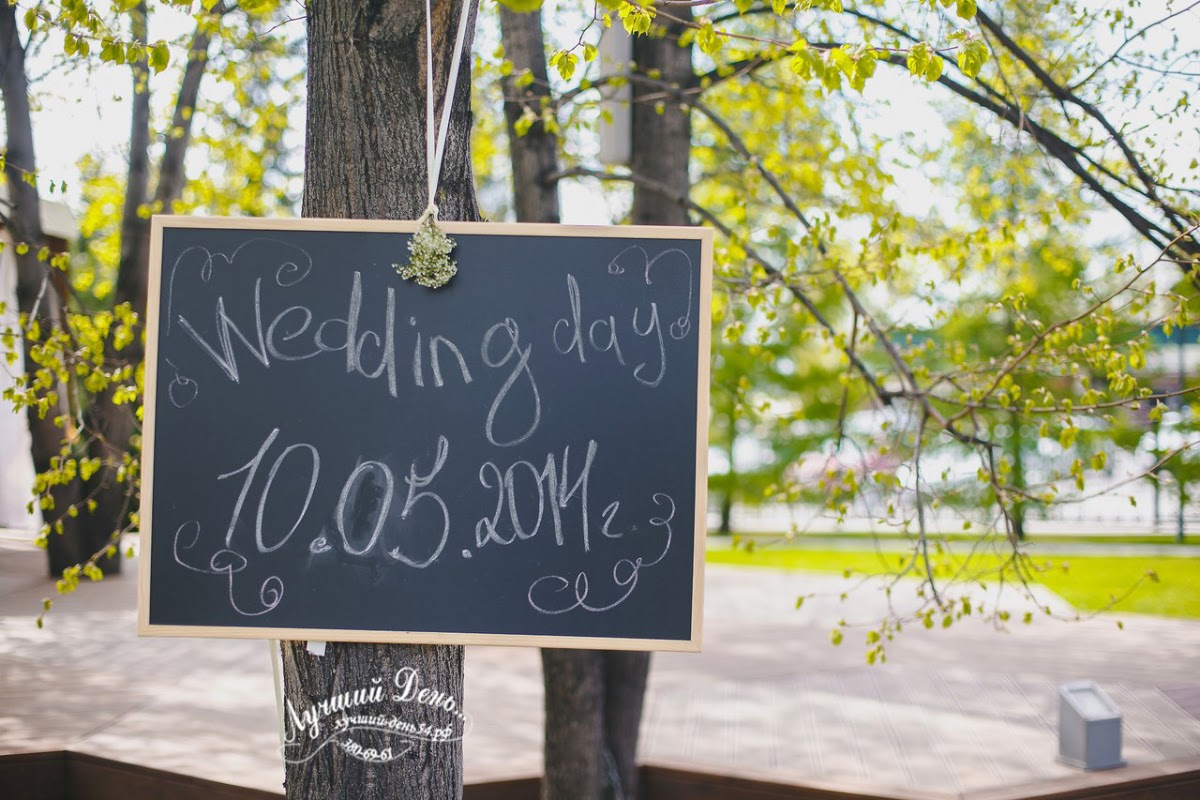 Wedding day
10.05.2014г
Лучший День...
лучший-день54.рф
380-69-61